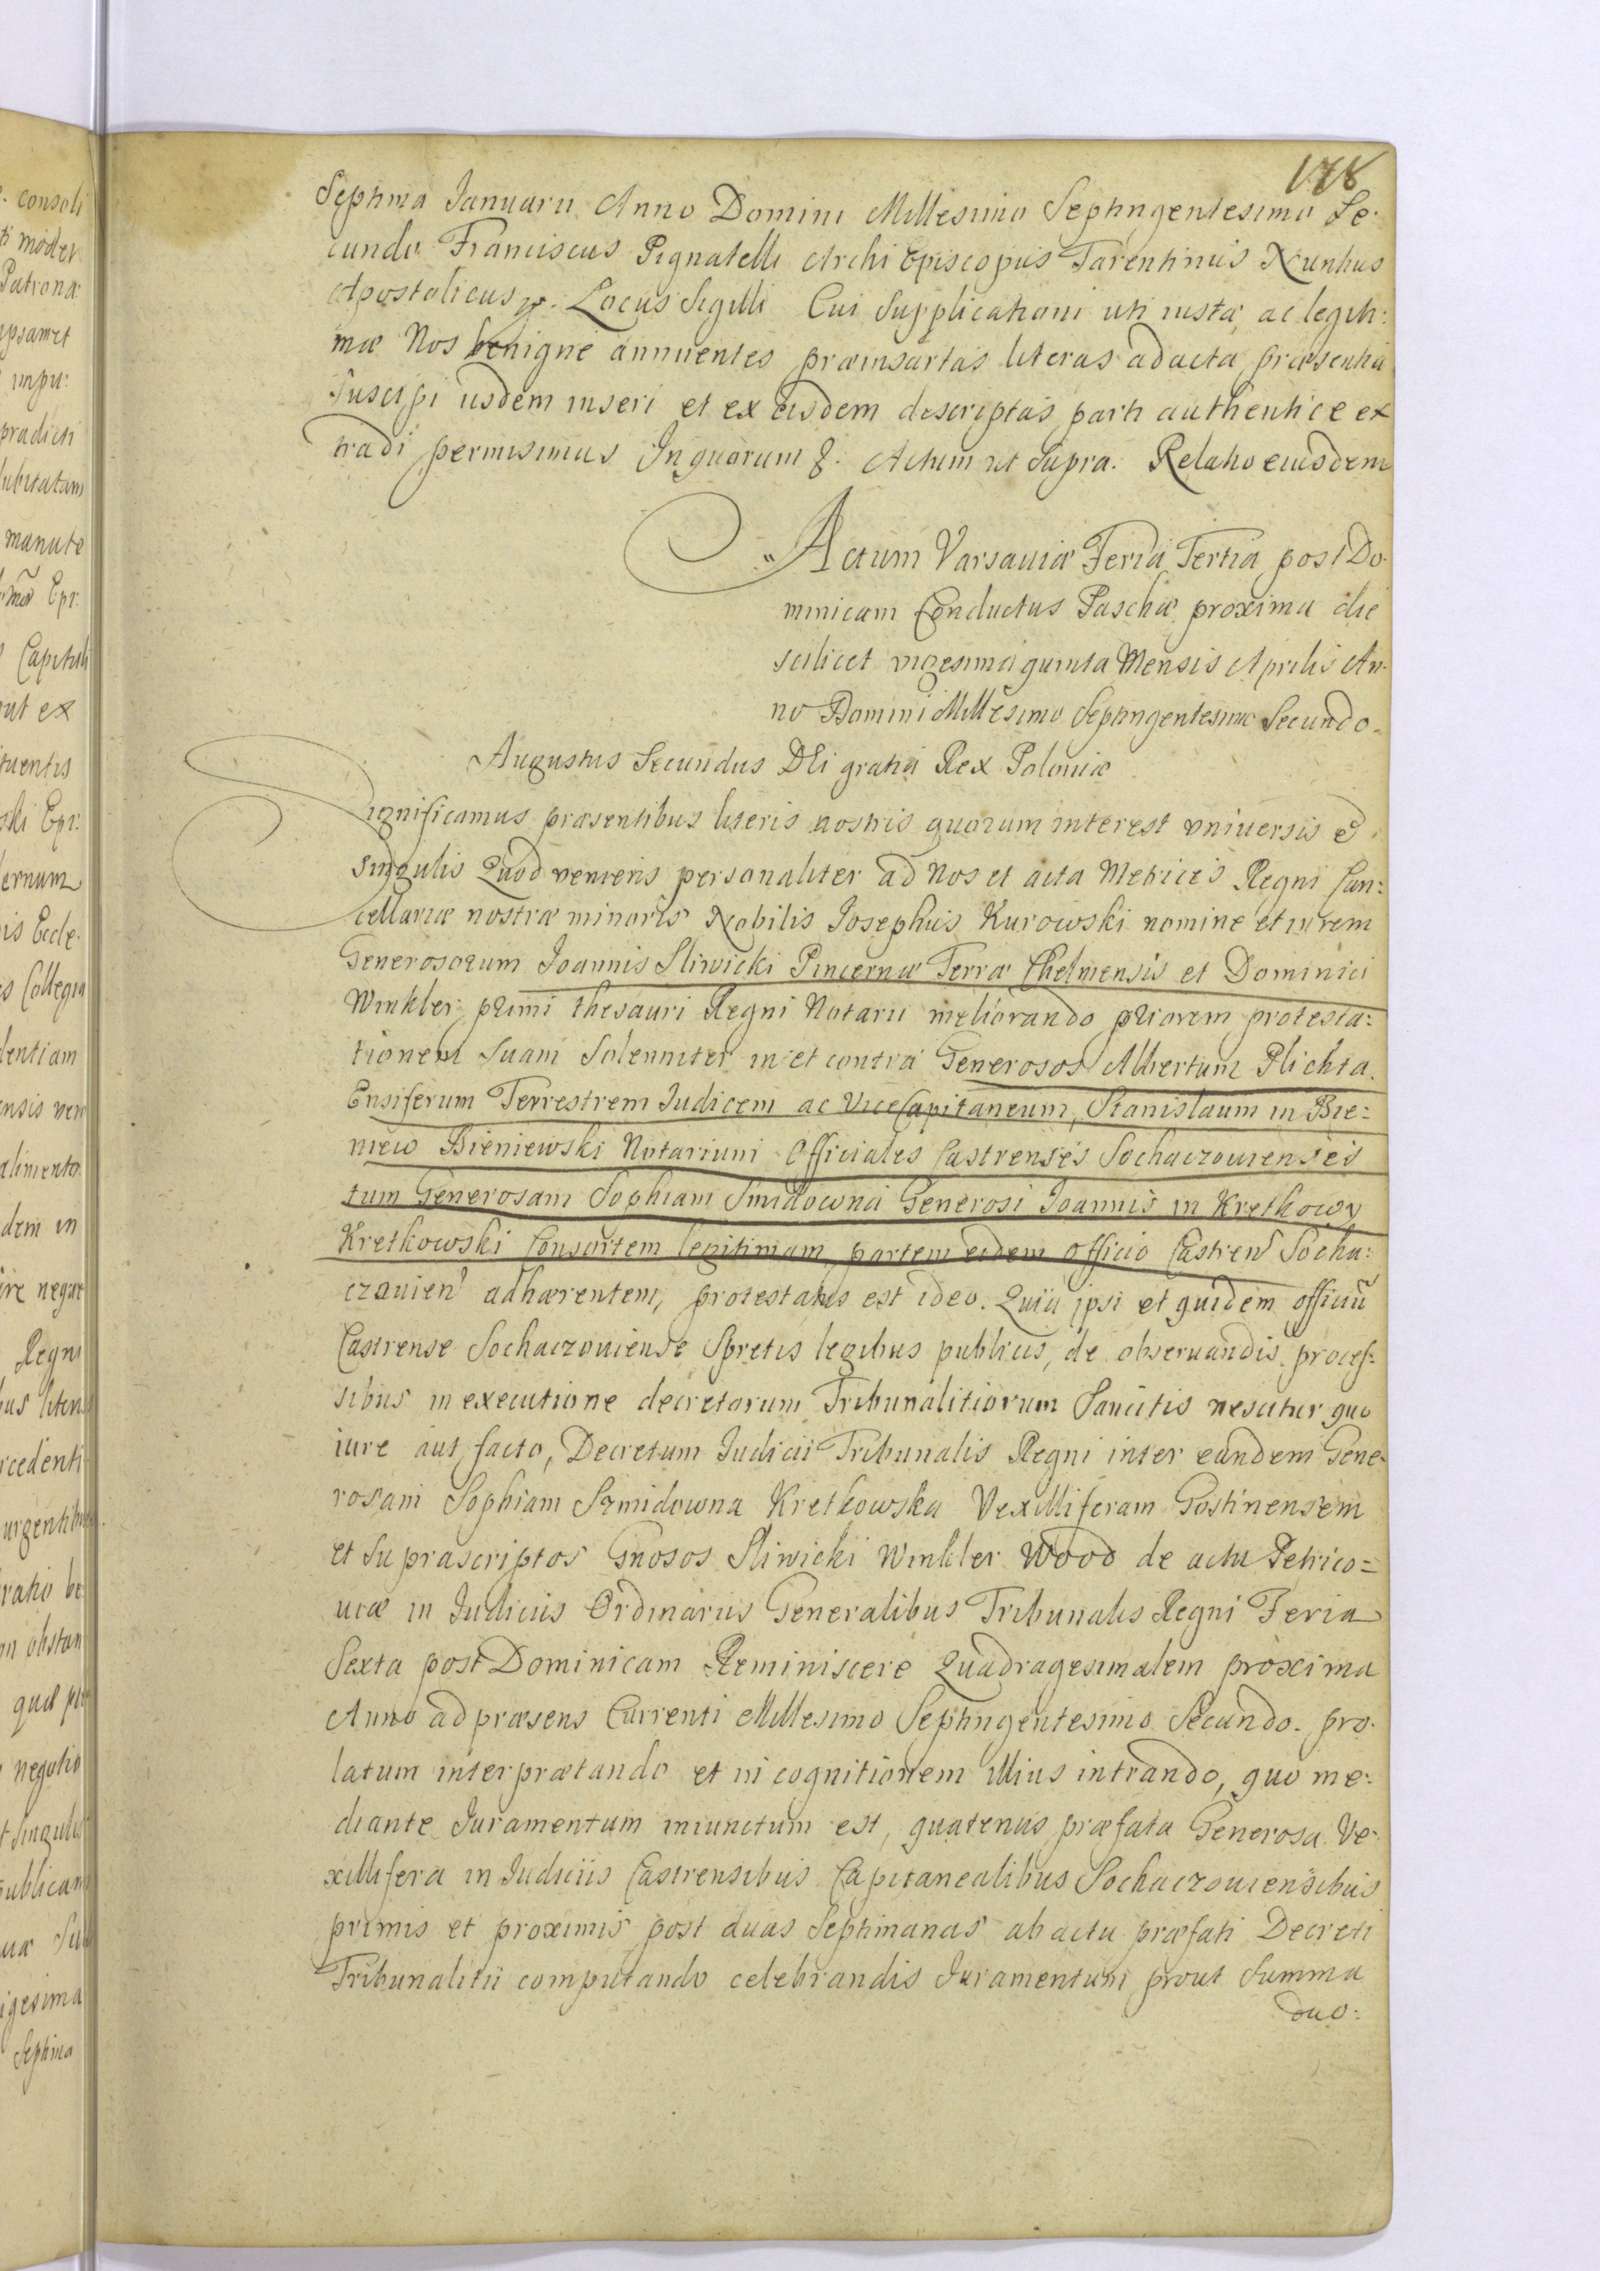 178
Septima Januarii Anno Domini Millesimo Septingentesimo Se-
cundo Franciscus Pignatelli Archi Episcopus Tarentinus Nuntius
Apostolicus Locus Sigilli Cui Supplicationi uti iustæ, ac legiti:
mæ Nos benigne annuentes præinsertas literas ad acta præsentia
Suscipi iisdem inseri et ex eisdem descriptas parti authentice ex
tradi permisimus In quorum &. Actum ut Supra. Relatio eiusdem
Actum Varsaviæ Feria Tertia post Do-
minicam Conductus Paschæ proxima die
scilicet vigesima quinta Mensis Aprilis An-
no Domini Millesimo Septingentesimo Secundo.
Augustus Secundus DEi gratia Rex Poloniæ
Significamus præsentibus literis nostris quorum interest universis &
singulis Quod veniens personaliter ad Nos et acta Metrices Regni Can:
cellariæ nostræ minoris Nobilis Josephus Kurowski nomine et in rem
Generosorum Joannis Sliwicki Pincernæ Terræ Chelmensis et Dominici
Winkler primi thesauri Regni Notarii meliorando priorem protesta:
tionem suam Solenniter in et contra Generosos Albertum Plichta
Ensiferum Terrestrem Judicem ac ViceCapitaneum, Stanislaum in Bie:
niew Bieniewski Notarium Officiales Castrenses Sochaczovienses
tum Generosam Sophiam Smidowna Generosi Joannis in Kretkowy
Kretkowski Consortem legitimam partem eidem officio Castren Socha:
czovien adhærentem, protestatus est ideo. Quia ipsi et quidem officiũ
Castrense Sochaczoviense Spretis legibus publicis, de observandis proces-
sibus in executione decretorum Tribunalitiorum Sancitis nescitur quo
iure aut facto, Decretum Judicii Tribunalis Regni inter eandem Gene-
rosam Sophiam Szmidowna Kretkowska Vexilliferam Gostinensem
et Suprascriptos Gnosos Sliwicki Winkler Wood de actu Petrico=
viæ in Judiciis Ordinariis Generalibus Tribunalis Regni Feria
Sexta post Dominicam Reminiscere Quadragesimalem proxima
Anno ad præsens Currenti Millesimo Septingentesimo Secundo. pro-
latum interprætando et in cognitionem illius intrando, quo me:
diante Juramentum iniunctum est, quatenus præfata Generosa Ve-
xillifera in Judiciis Castrensibus Capitanealibus Sochaczoviensibus
primis et proximis post duas Septimanas ab actu præfati Decreti
Tribunalitii computando celebrandis Juramentum prout Summa
duo: